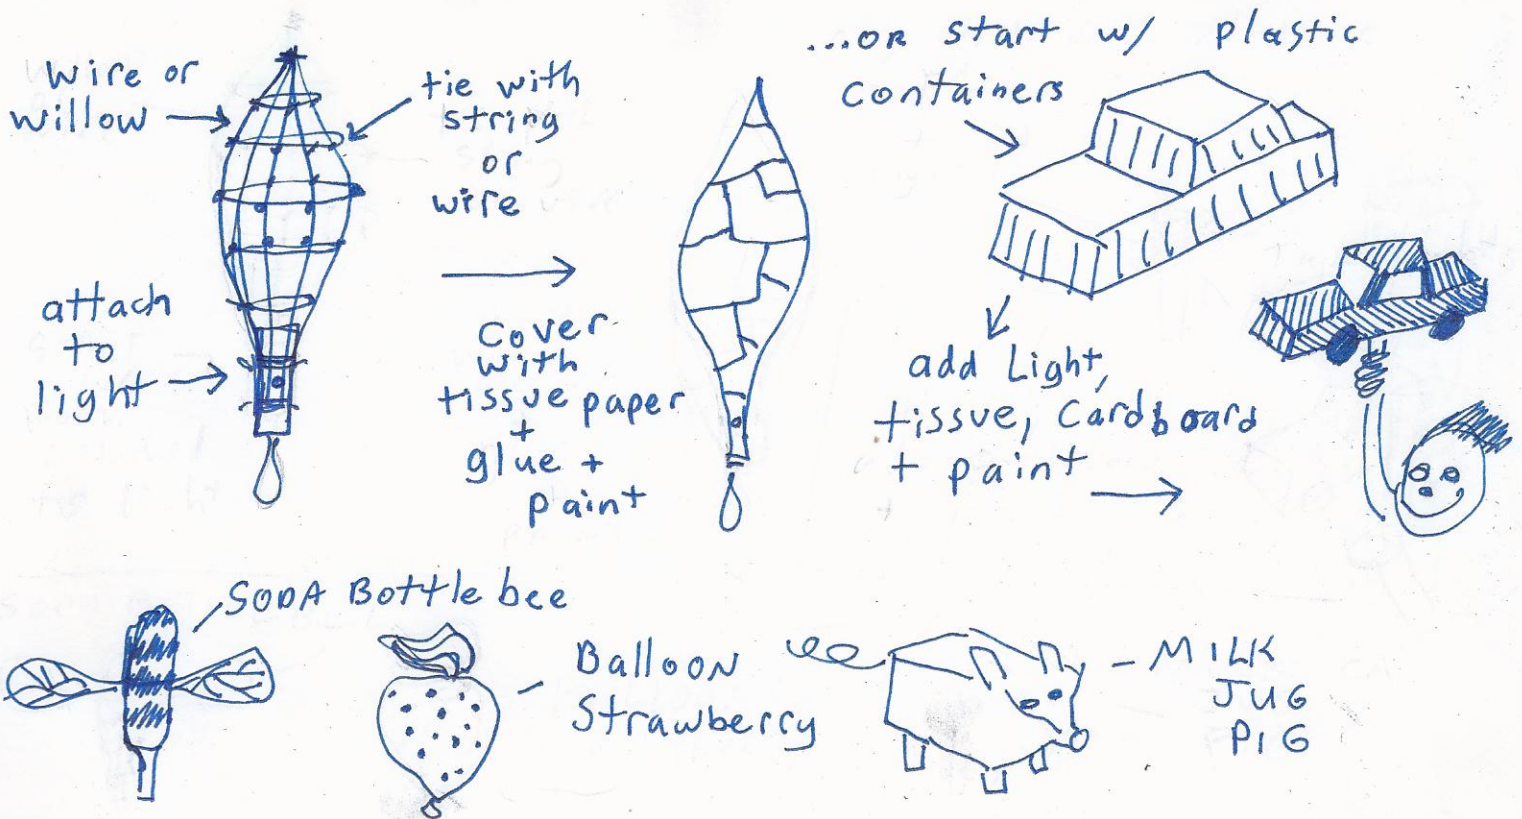 wire or
willow
tie with
string
or
wire
attach
to
light
cover
with
tissue paper
+
glue +
paint
...OR start w/ plastic
containers
add Light,
tissue, cardboard
+ paint
SODA Bottle bee
Balloon
Strawberry
MILK
JUG
PIG